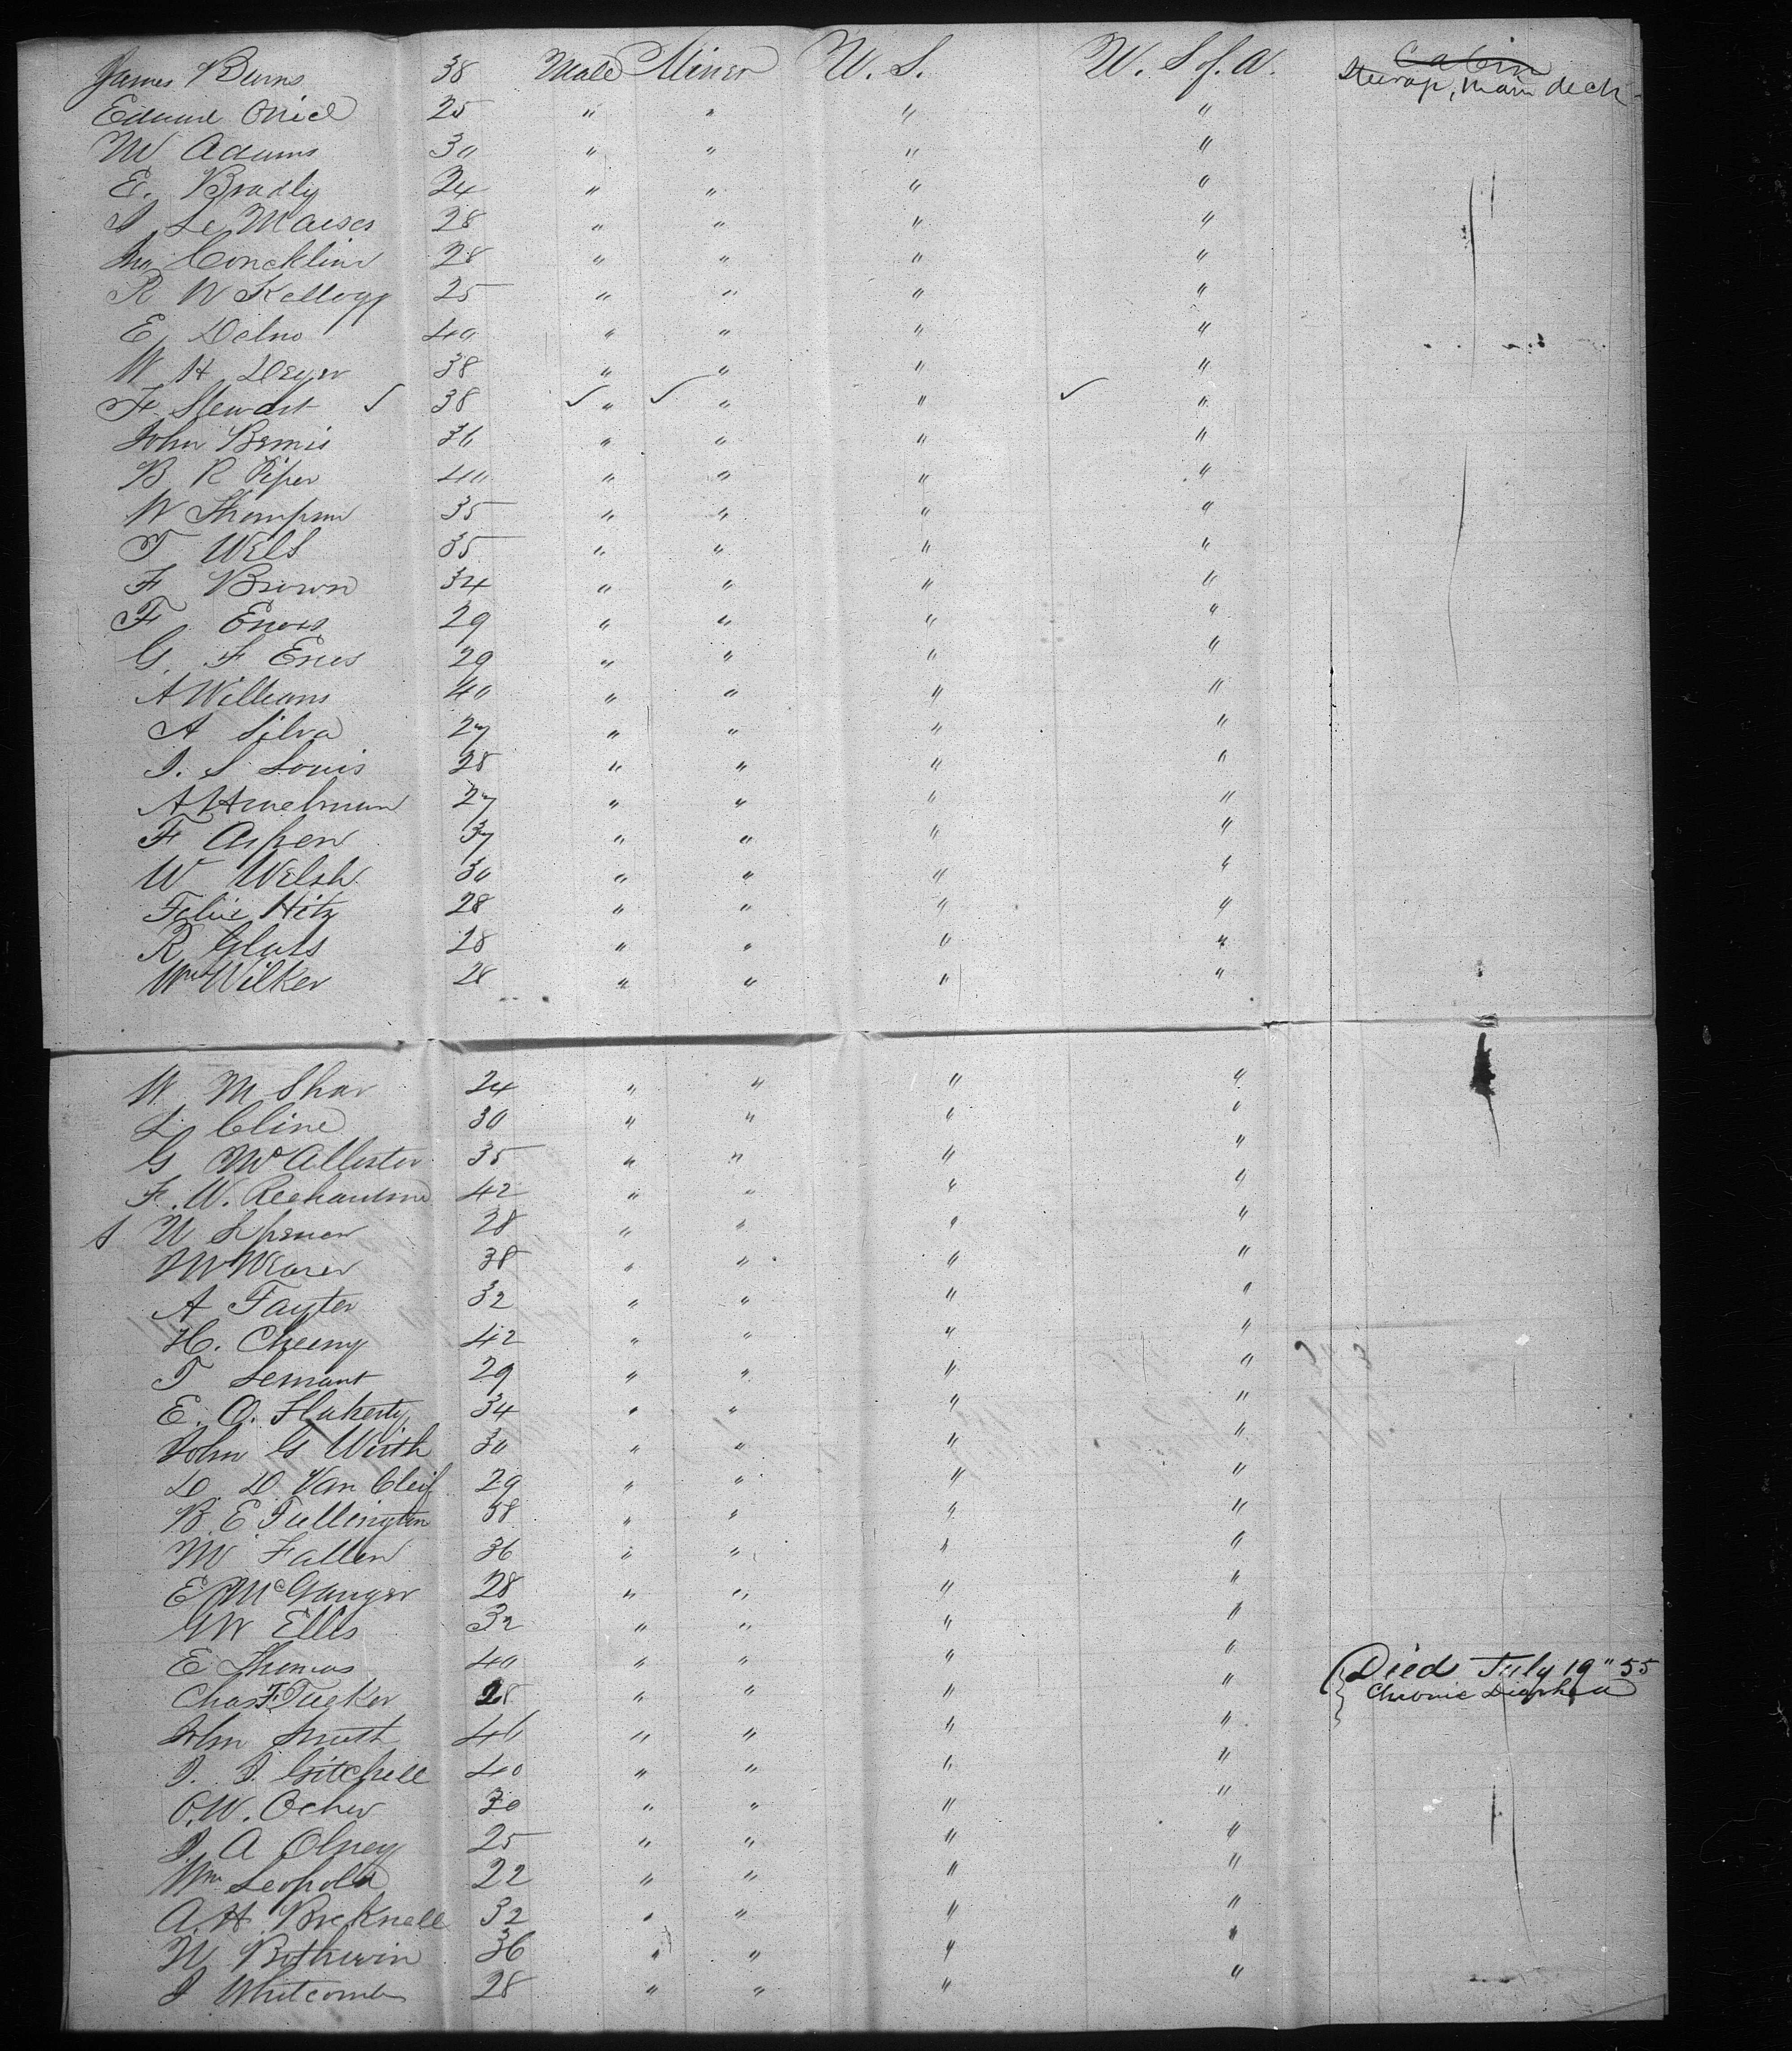 James Burns 38 Male Miner U.S. U.S of A. Cabin
Steerage, Main deck
Edward Oniel 25 " " " "
M Adams 30 " " " "
E. Bradly 24 " " " "
J Le 28 " " " "
Jno Foncklin 28 " " " "
R W Kellogg 25 " " " "
E Delno 40 " " " "
W H Dyer 38 " " " "
F. Stewart ✓ 38 ✓ " ✓ " " ✓ "
John Bemis 36 " " " "
B R Piper 40 " " " "
W Thompson 35 " " " "
T Wels 35 " " " "
F Brown 34 " " " "
F Enos 29 " " " "
G. F Enos 29 " " " "
A Williams 40 " " " "
A Silva 27 " " " "
J. S Louis 28 " " " "
A 27 " " " "
F Aspen 37 " " " "
W Welsh 30 " " " "
Felix Hitz 28 " " " "
R Glass 28 " " " "
Wm Wilker 28 " " " "
W. M Shaw 24 " " " "
L Cline 30 " " " "
G McAllester 35 " " " "
F. W. Richardson 42 " " " "
S W Spencer 28 " " " "
M Weaver 38 " " " "
A Tayter 32 " " " "
H. Cheeny 42 " " " "
T Lemant 29 " " " "
E. O. Flaherty 34 " " " "
John G Wirth 30 " " " "
D. D Van Cleif 29 " " " "
B. E Fullington 38 " " " "
M Fallen 36 " " " "
E McGanger 28 " " " "
G W Ellis 32 " " " "
E Thomas 40 " " " "
Chas F Tucker 28 " " " " Died July 19" 55
Chronic Diarhea
John Smith 46 " " " "
J. J. Gitchell 40 " " " "
O. W. Ocher 30 " " " "
J. A Olney 25 " " " "
Wm Leopold 22 " " " "
A. H. Bucknell 32 " " " "
W. Bothwin 36 " " " "
J Whitcomb 28 " " " "